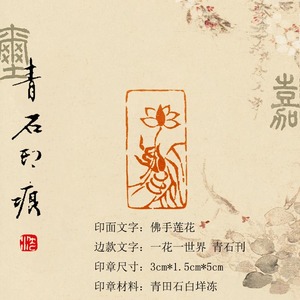 璽
青石印痕
嘉
印面文字：佛手莲花
边款文字：一花一世界 青石刊
印章尺寸：3cm*1.5cm*5cm
印章材料：青田石白垟冻